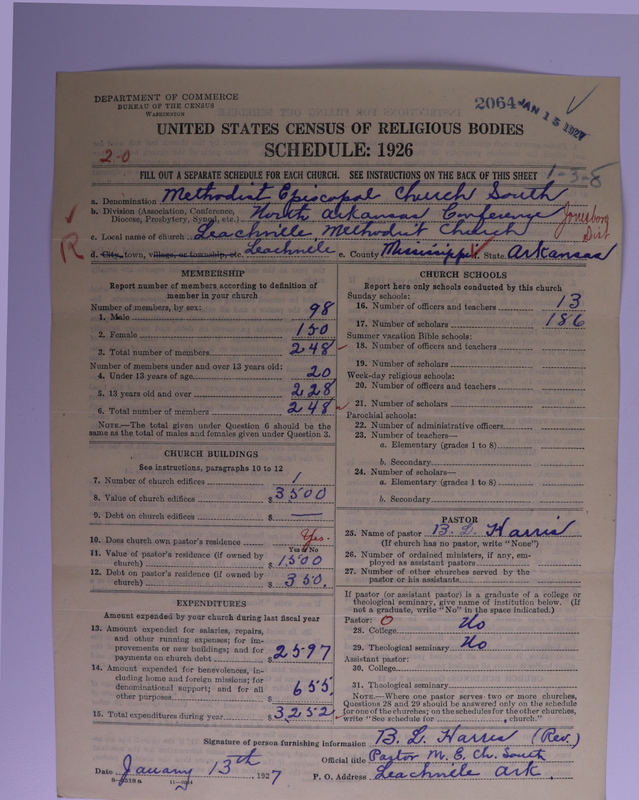 DEPARTMENT OF COMMERCE
BUREAU OF THE CENSUS
WASHINGTON
2064 JAN 15 1927
UNITED STATES CENSUS OF RELIGIOUS BODIES
SCHEDULE: 1926
2-0
FILL OUT A SEPARATE SCHEDULE FOR EACH CHURCH. SEE INSTRUCTIONS ON THE BACK OF THIS SHEET
1-5-8
a. Denomination Methodist Episcopal Church South
b. Division (Association, Conference, Diocese, Presbytery, Synod, etc.) North Arkansas Conference
Jonesboro Dist
c. Local name of church Leachville Methodist Church
R
d. City, town, village, or township, etc. Leachville e. County Mississippi f. State Arkansas
MEMBERSHIP
Report number of members according to definition of
member in your church
Number of members, by sex:
1. Male 98
2. Female 150
3. Total number of members 248
Number of members under and over 13 years old:
4. Under 13 years of age 20
5. 13 years old and over 228
6. Total number of members 248
NOTE.—The total given under Question 6 should be the
same as the total of males and females given under Question 3.
CHURCH BUILDINGS
See instructions, paragraphs 10 to 12
7. Number of church edifices 1
8. Value of church edifices $3500
9. Debt on church edifices $ —
10. Does church own pastor's residence Yes.
Yes or No
11. Value of pastor's residence (if owned by
church) $1500
12. Debt on pastor's residence (if owned by
church) $350.
EXPENDITURES
Amount expended by your church during last fiscal year
13. Amount expended for salaries, repairs,
and other running expenses; for im-
provements or new buildings; and for
payments on church debt $2597
14. Amount expended for benevolences, in-
cluding home and foreign missions; for
denominational support; and for all
other purposes $655
15. Total expenditures during year $3252
CHURCH SCHOOLS
Report here only schools conducted by this church
Sunday schools:
16. Number of officers and teachers 13
17. Number of scholars 186
Summer vacation Bible schools:
18. Number of officers and teachers
19. Number of scholars
Week-day religious schools:
20. Number of officers and teachers
21. Number of scholars
Parochial schools:
22. Number of administrative officers
23. Number of teachers—
a. Elementary (grades 1 to 8)
b. Secondary
24. Number of scholars—
a. Elementary (grades 1 to 8)
b. Secondary
PASTOR
25. Name of pastor B. L. Harris
(If church has no pastor, write "None")
26. Number of ordained ministers, if any, em-
ployed as assistant pastors
27. Number of other churches served by the
pastor or his assistants
If pastor (or assistant pastor) is a graduate of a college or
theological seminary, give name of institution below. (If
not a graduate, write "No" in the space indicated.)
Pastor: 0
28. College No
29. Theological seminary No
Assistant pastor:
30. College
31. Theological seminary
NOTE.—Where one pastor serves two or more churches,
Questions 28 and 29 should be answered only on the schedule
for one of the churches; on the schedules for the other churches,
write "See schedule for , church."
Signature of person furnishing information B. L. Harris (Rev.)
Official title Pastor M. E. Ch. South
Date January 13th, 1927 P. O. Address Leachville Ark